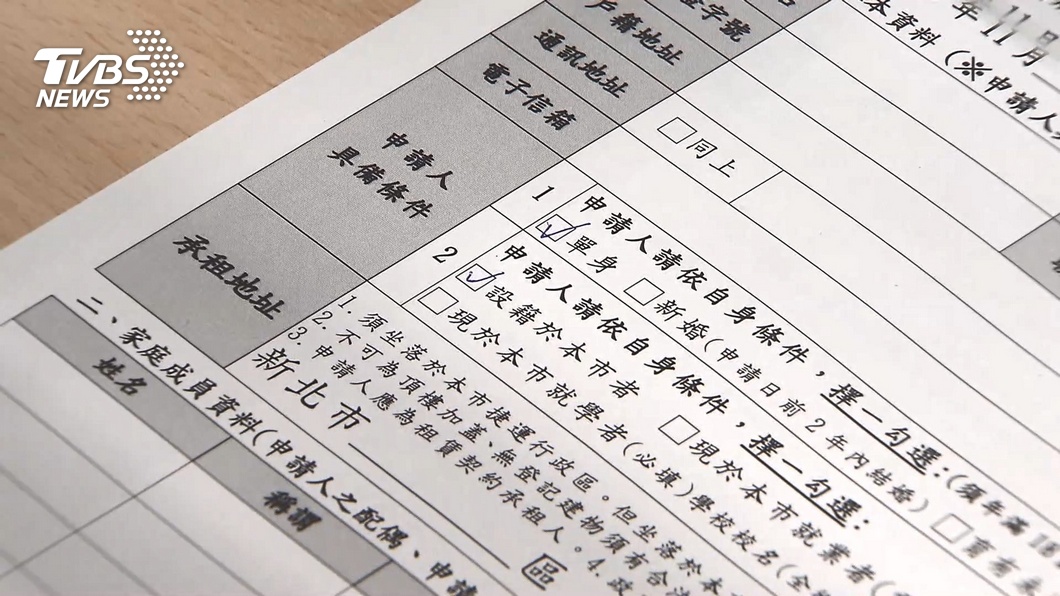 TVBS
NEWS
年11月
本資料(※申請人
證字號
戶籍地址
通訊地址
電子信箱
□同上
申請人
具備條件
1 申請人請依自身條件,擇一勾選:(須年滿18
☑單身 □新婚(申請日前2年內結婚) □育有
2 申請人請依自身條件,擇一勾選:
☑設籍於本市者 □現於本市就業者(
□現於本市就學者(必填)學校校名(全
承租地址
1. 須坐落於本市捷運行政區。但坐落於本
2. 不可為頂樓加蓋、無登記建物須有合法
3. 申請人應為租賃契約承租人。4. 政
新北市 區
二、家庭成員資料(申請人之配偶、申請
姓名
稱謂